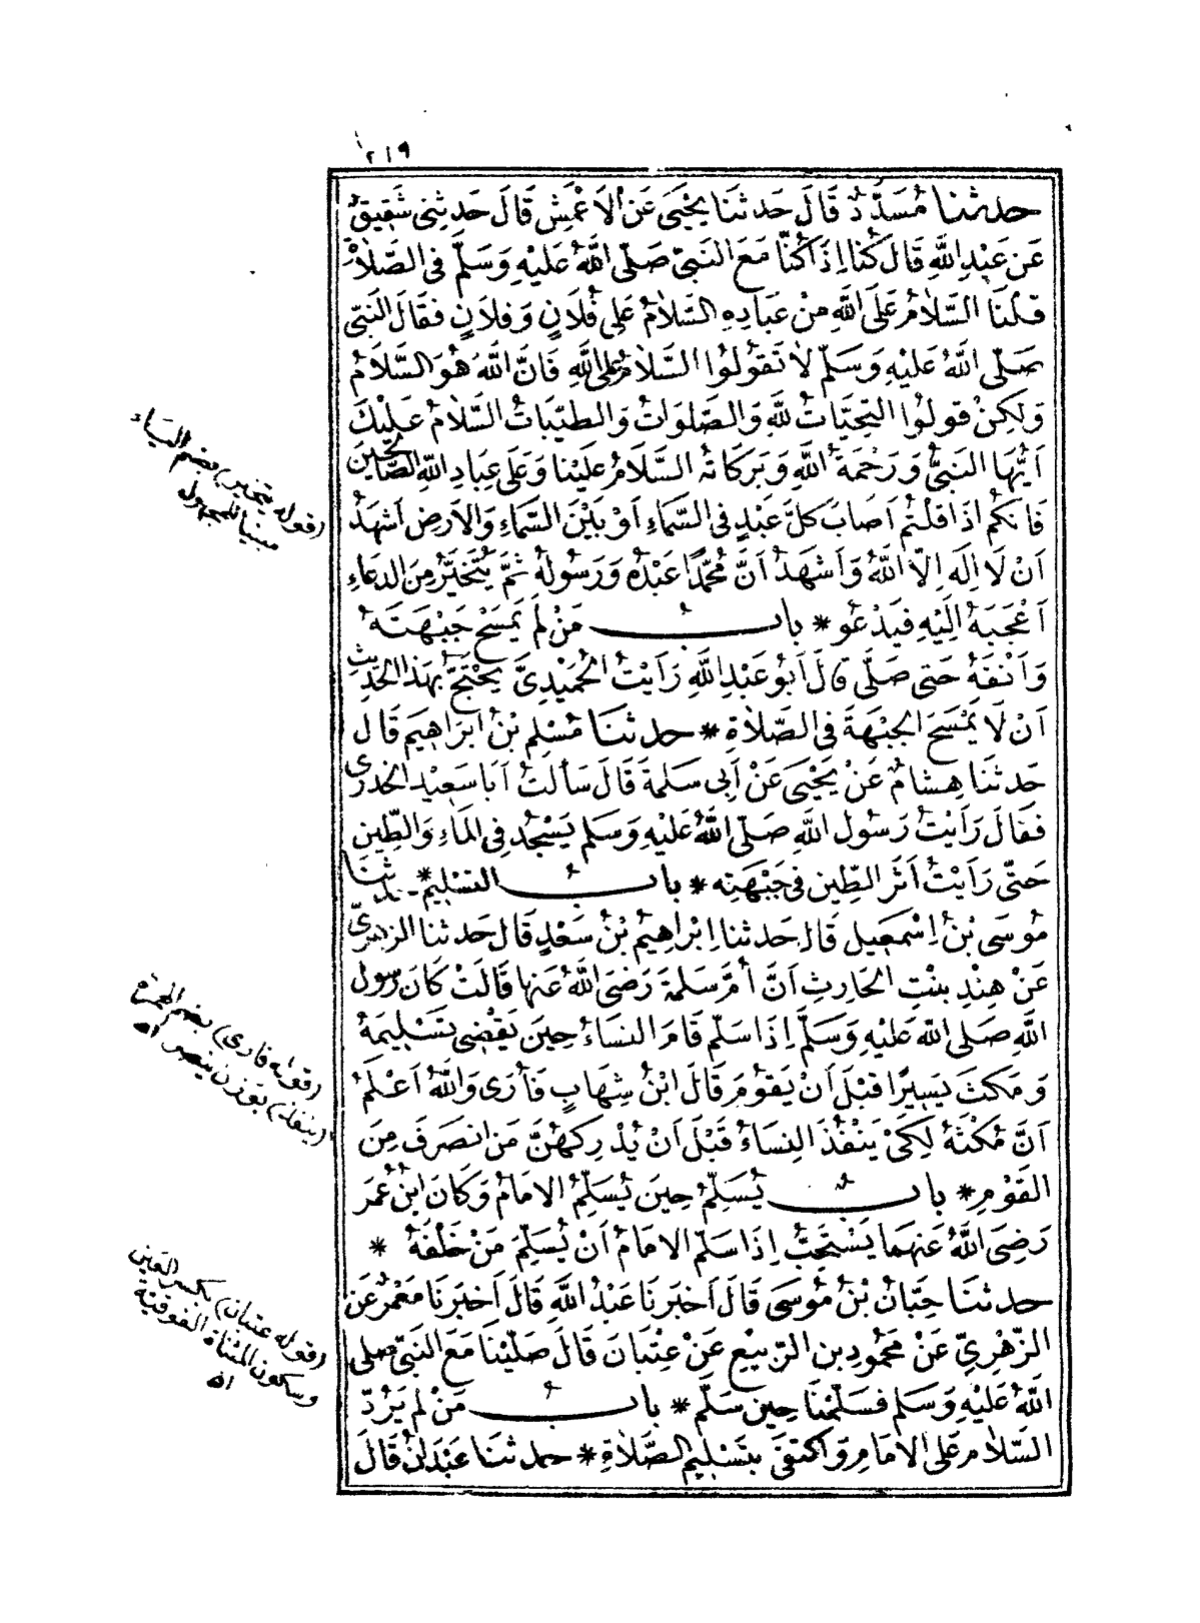 ٢١٩
حدثنا مُسَدَّدٌ قَالَ حَدثنَا يَحْيَى عَنِ الاَعْمَشِ قَالَ حَدثِنى شَقِيقٌ
عَن عَبْدِ اللَّهِ قَالَ كُنَّا اِذَا كُنَّا مَعَ النَبىِّ صَلّى اللَّهُ عَلَيْهِ وَسَلّم فى الصَّلاَةِ
قلْنَا السَّلاَمُ عَلَى اللَّهِ مِنْ عبَادِهِ السَّلاَمُ عَلى فُلَانٍ وَفلَانٍ فقَالَ النَبىّ
صَلّى اللَّهُ عَلَيْهِ وَسَلّم لاَ تقُولُوا السَّلاَمُ عَلى اللَّهِ فَانَّ اللَّهَ هُوَ السَّلاَمُ
وَلكِنْ قولُوا التحِيَّاتُ للَّهِ وَالصَّلوَاتُ وَالطيّبَاتُ السَّلاَمُ عَلَيْكَ
اَيُّهَا النَبىُّ وَرَحْمَةُ اللَّهِ وَبَرَكَاتهُ السَّلاَمُ عَلَيْنا وَعَلى عِبَادِ اللَّهِ الصَّالحِينَ
فَانكُم اذَا قلْتُم اَصَابَ كلَّ عَبْدٍ فى السَّمَاءِ اَوْ بَيْنَ السَّمَاءِ وَالاَرضِ اَشهَدُ
اَنْ لاَ اِلَه اِلاَّ اللَّهُ وَاَشهَدُ اَنَّ مُحَمَّدًا عَبْدُهُ وَرَسُولهُ ثمَّ يُتَخَيَّرُ مِنَ الدعَاءِ
اَعْجَبَهُ اِلَيْهِ فيَدْعُو * بابُ مَنْ لَم يَمسَحْ جَبْهَتَهُ
وَاَنْفَهُ حَتى صَلّى قالَ اَبُو عَبْدِ اللَّهِ رَاَيْتُ الحُمَيْدِىَّ يَحْتَجُّ بهَذا الحَدِيثِ
اَنْ لاَ يَمْسَحَ الجَبْهَةَ فى الصَّلاَةِ * حدثنَا مُسْلِم بْنُ ابرَاهِيمَ قَال
حَدثَنَا هِشامٌ عَنْ يَحْيَى عَنْ اَبى سَلمةَ قَالَ سَألتُ اَبَا سَعِيْد الخدرىّ
فقَالَ رَاَيْتُ رَسُولَ اللَّهِ صَلّى اللَّهُ عَلَيْهِ وَسَلم يَسْجُد فِى المَاءِ وَالطّينِ
حَتّى رَاَيْتُ اَثَرَ الطّينِ فى جَبْهَتِه * بابُ التسْلِيم * حدثنَا
مُوسَى بْنُ اِسْمَعِيل قَالَ حَدثنا اِبْرَاهِيمُ بْنُ سَعْدٍ قَالَ حَدثنا الزهرىّ
عَنْ هِنْدِ بنْتِ الحَارِثِ اَنَّ اُمَّ سَلمةَ رَضىَ اللَّهُ عَنهَا قَالَتْ كَانَ رسُول
اللَّهِ صَلى اللَّه عَلَيْهِ وَسَلَّم اِذَا سَلّم قَامَ النسَاءُ حِينَ يَقْضِى تَسْلِيمَهُ
وَمَكثَ يَسِيرًا قبْلَ اَنْ يَقُومَ قَالَ ابْنُ شِهَابٍ فَأُرَى وَاللَّهُ اَعْلَمُ
اَنَّ مُكْثَهُ لِكَىْ يَنْفُذَ النِسَاءُ قَبْلَ اَنْ يُدْرِكهُنَّ مَنِ انصَرَفَ مِنَ
القَوْمِ * بابُ يُسَلِّمُ حِينَ يُسَلِّمُ الامَامُ وَكَانَ ابْنُ عُمَرَ
رَضِىَ اللَّهُ عَنهمَا يَسْتَحِبُّ اِذَا سَلّم الامَامُ اَنْ يُسَلِّمَ مَنْ خَلْفَهُ *
حدثنَا حِبَّانُ بْنُ مُوسَى قَالَ اَخبَرنَا عَبْدُ اللَّهِ قَالَ اَخبَرَنَا مَعْمَرٌ عَن
الزّهْرِىِّ عَنْ مَحمُودِ بنِ الرّبيْعِ عَنْ عِتبَانَ قَالَ صَلّيْنَا مَعَ النَبىّ صَلى
اللَّهُ عَلَيْهِ وَسَلم فسَلّمْنَا حِينَ سَلَّم * بابُ مَنْ لَم يَرُدّ
السّلاَمَ عَلى الاِمَامِ وَاكتفَى بتَسْلِيم الصَّلاَةِ * حدثنَا عَبْدَانُ قَالَ
(قوله يتخير) بضم الياء
مبنيا للمجهول
(قوله فارى) بضم الهمزة
(ينفذ) بوزن ينصر اه
(قوله عتبان) بكسر العين
وسكون المثناة الفوقية
اه